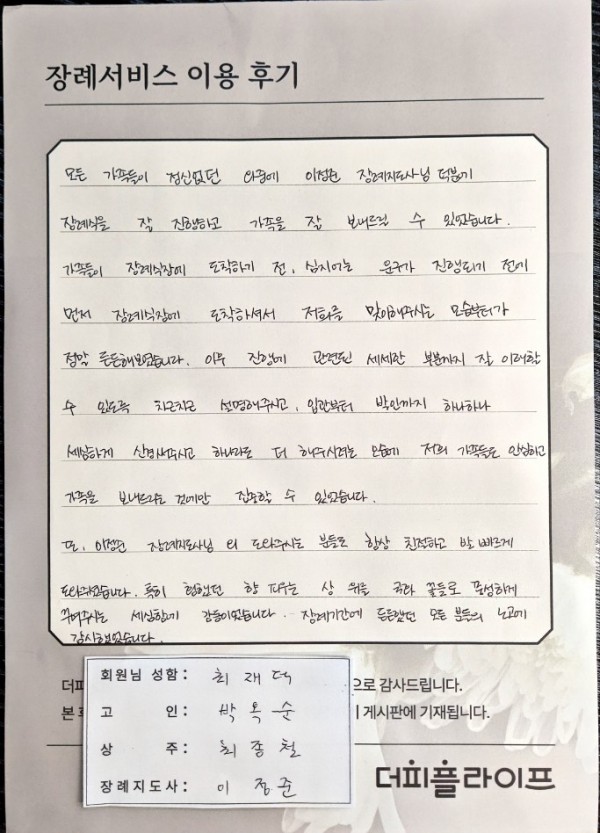 장례서비스 이용 후기
모든 가족들이 정신없던 와중에 이정준 장례지도사님 덕분에
장례식을 잘 진행하고 가족을 잘 보내드릴 수 있었습니다.
가족들이 장례식장에 도착하기 전, 심지어는 운구가 진행되기 전에
먼저 장례식장에 도착하셔서 저희를 맞이해주시는 모습부터가
정말 든든해보였습니다. 이후 진행에 관련된 세세한 부분까지 잘 이해할
수 있도록 차근차근 설명해주시고, 입관부터 발인까지 하나하나
세심하게 신경써주시고 하나라도 더 해주시려는 모습에 저희 가족들은 안심하고
가족을 보내드리는 것에만 집중할 수 있었습니다.
또, 이정준 장례지도사님 외 도와주시는 분들도 항상 친절하고 발 빠르게
도와주셨습니다. 특히 헌화했던 향 피우는 상 위를 국화 꽃들로 풍성하게
꾸며주시는 세심함에 감동이었습니다. 장례기간에 든든했던 모든 분들의 노고에
감사했었습니다.
더피 으로 감사드립니다.
본 후 게시판에 기재됩니다.
회원님 성함: 최재덕
고 인: 박옥순
상 주: 최종철
장례지도사: 이정준
더피플라이프